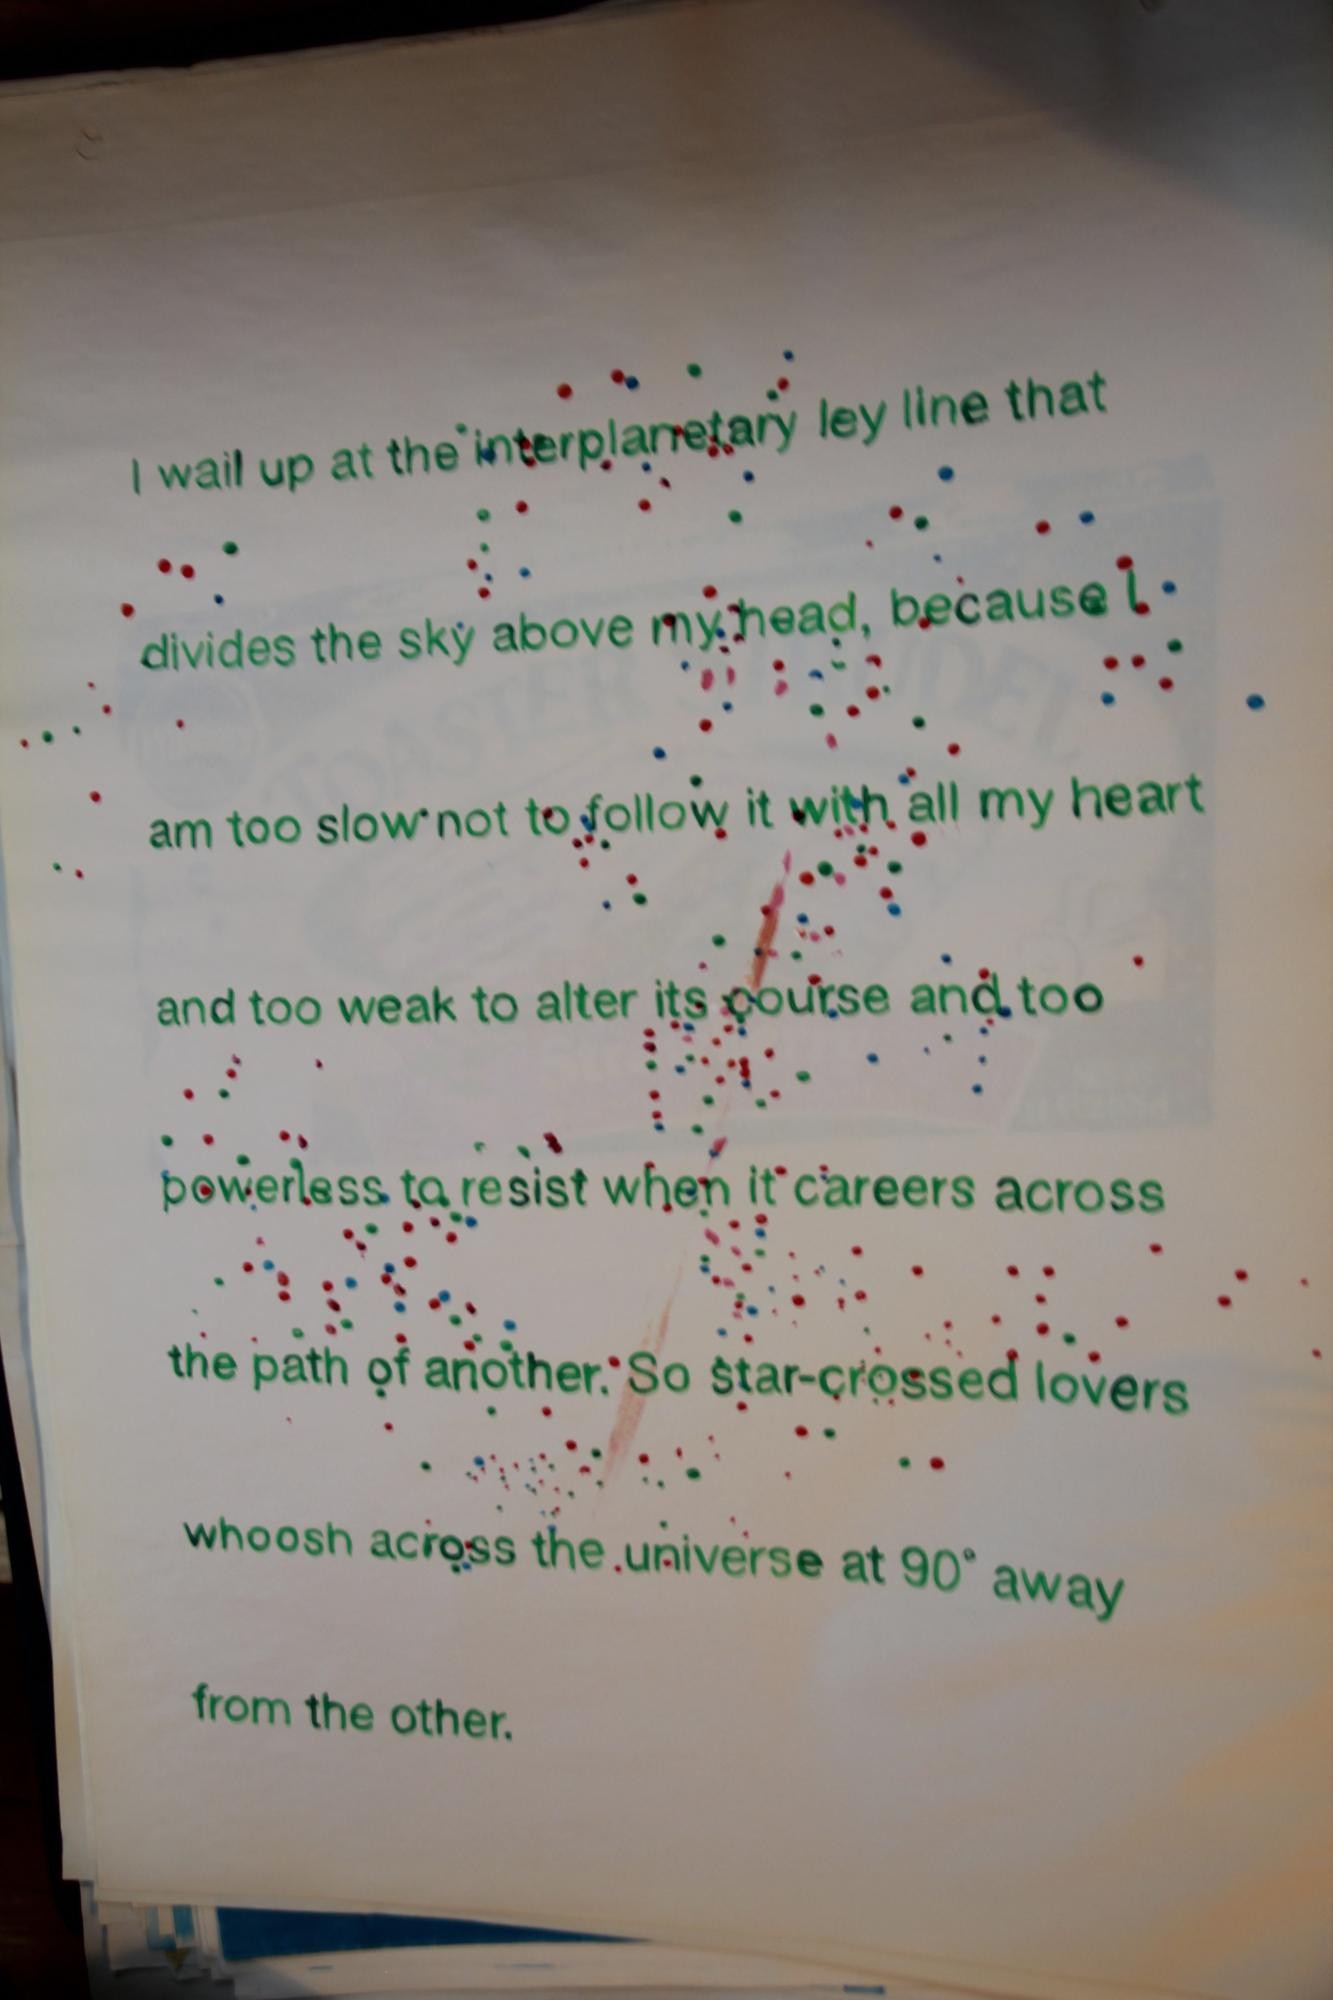 I wail up at the interplanetary ley line that
divides the sky above my head, because I
am too slow not to follow it with all my heart
and too weak to alter its course and too
powerless to resist when it careers across
the path of another. So star-crossed lovers
whoosh across the universe at 90° away
from the other.
TOASTER STRUDEL